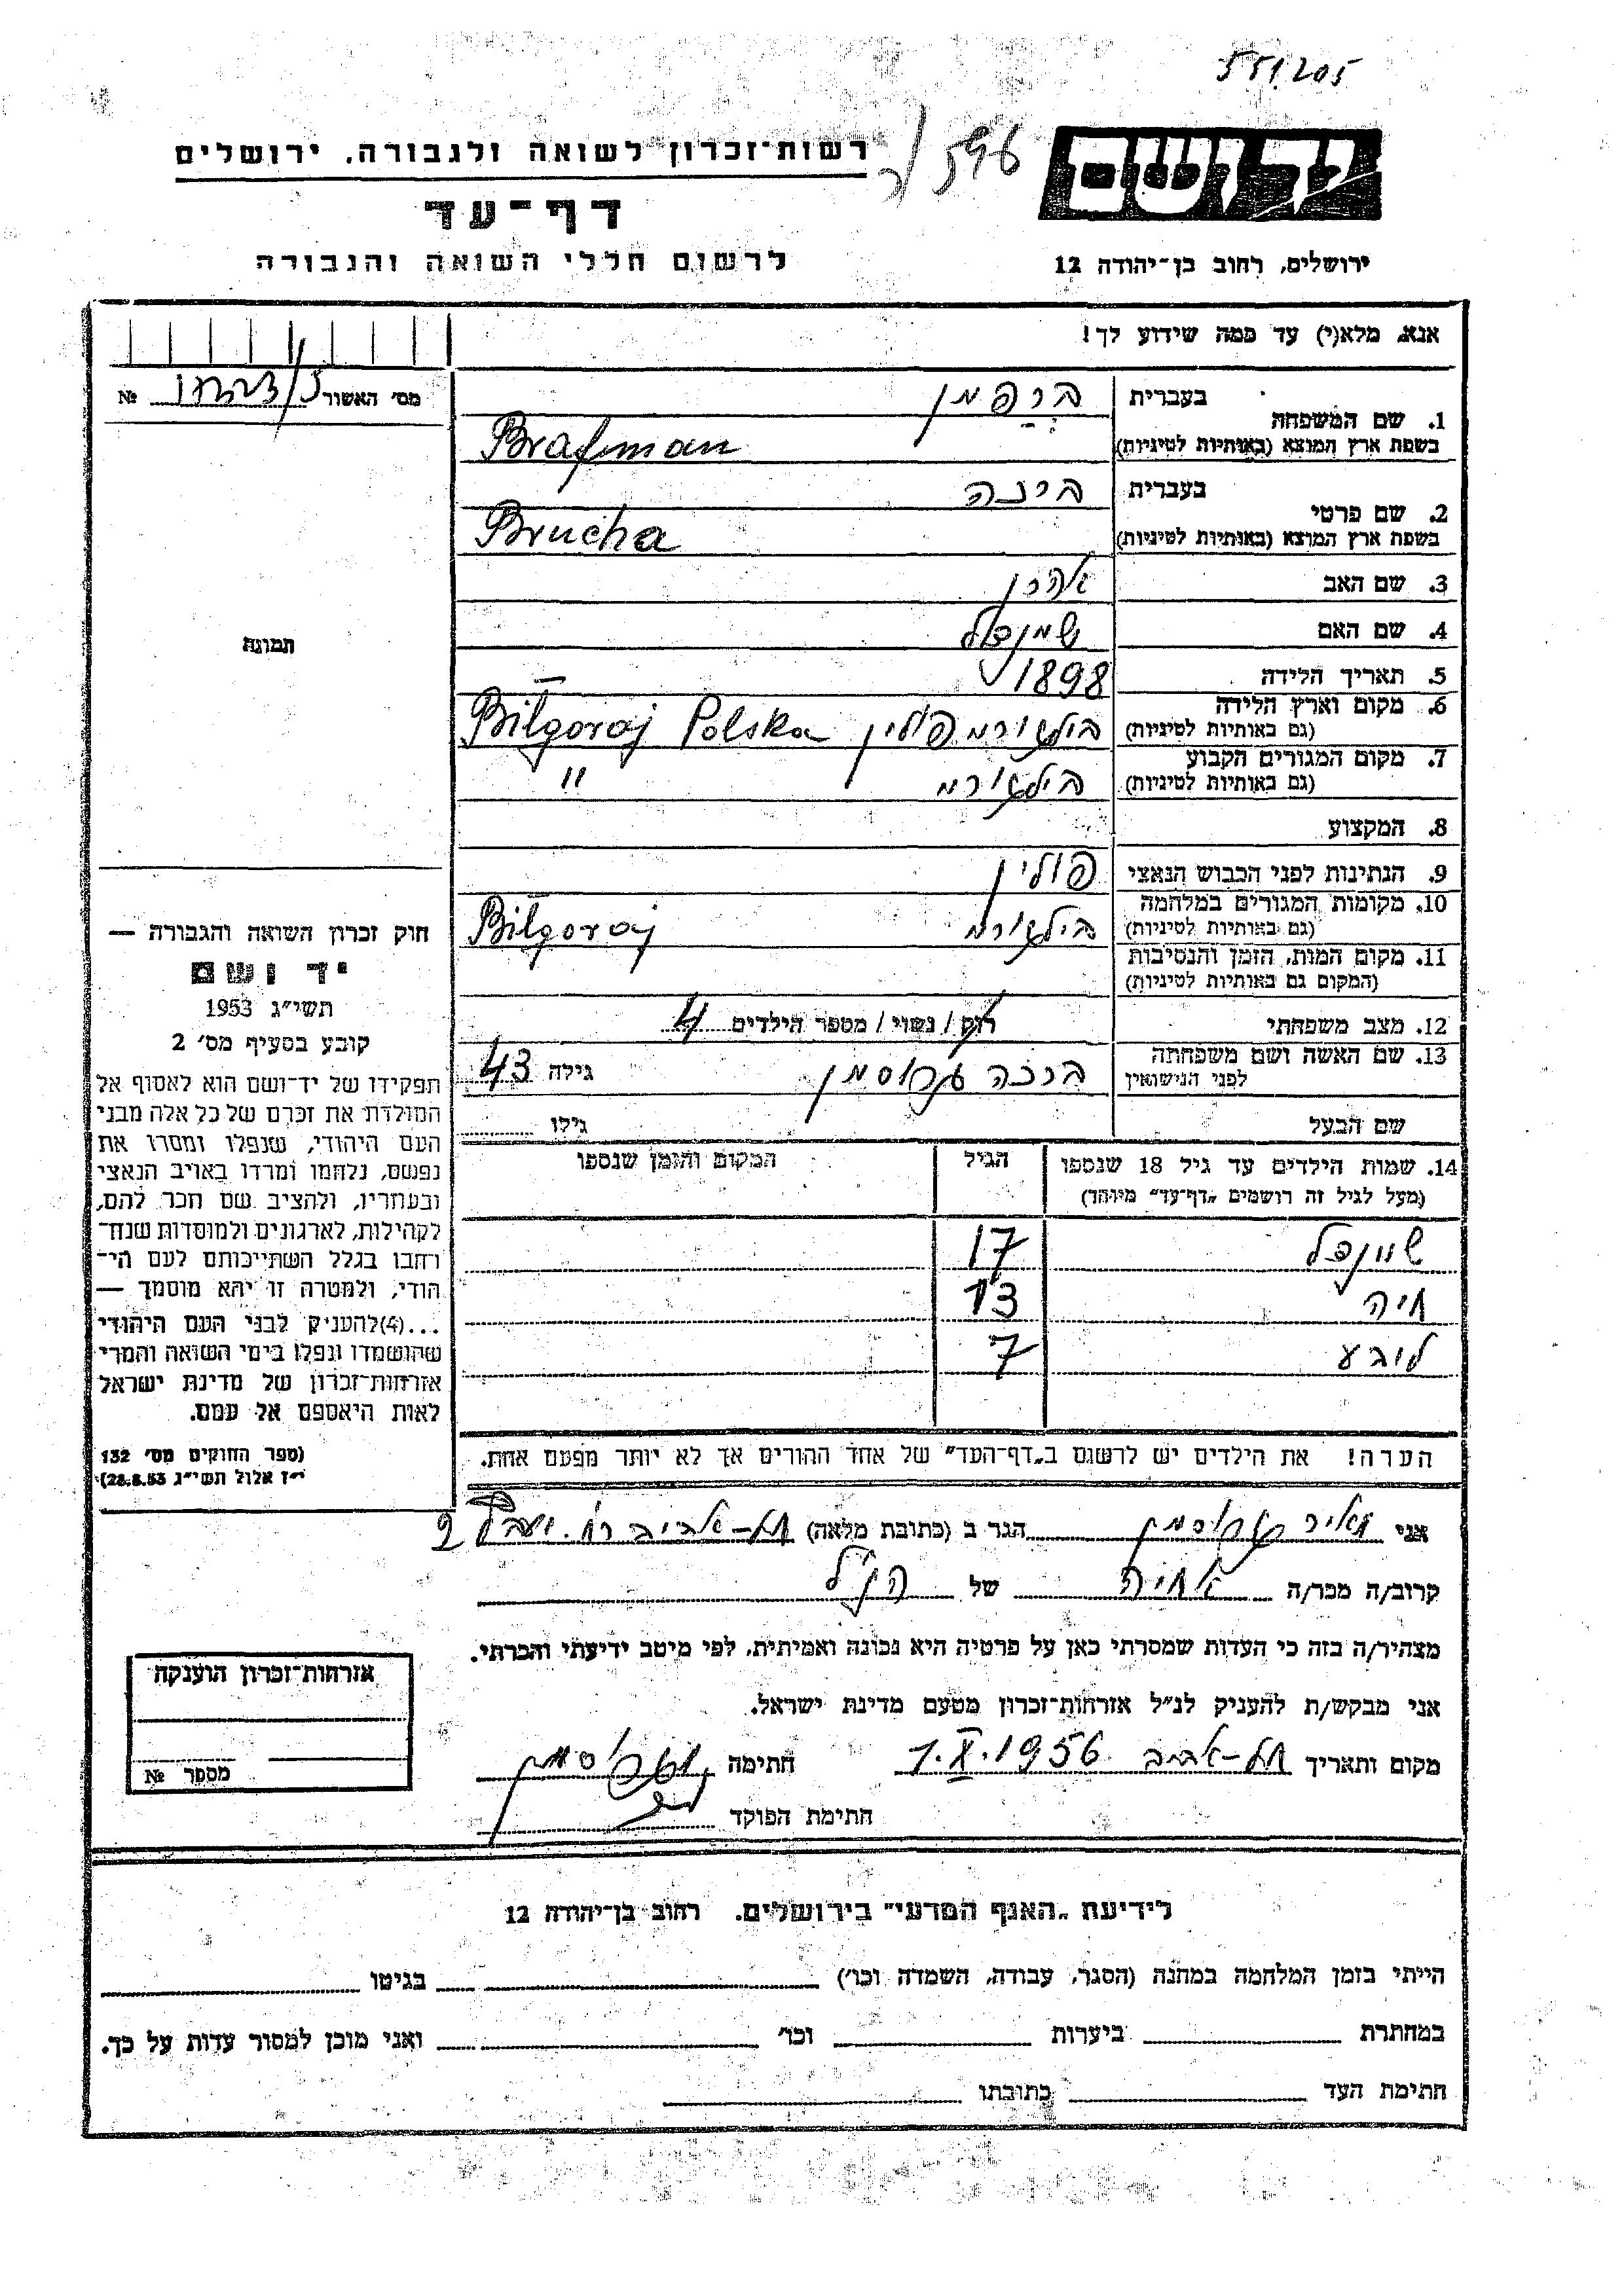 551205
רשות־זכרון לשואה ולגבורה, ירושלים
דף־עד
לרשום חללי השואה והגבורה
ירושלים, רחוב בן־יהודה 12
אנא, מלא(י) עד כמה שידוע לך!
מס׳ האשור №
1. שם המשפחה
בעברית ברפמן
בשפת ארץ המוצא (באותיות לטיניות) Brafman
2. שם פרטי
בעברית ברכה
בשפת ארץ המוצא (באותיות לטיניות) Brucha
3. שם האב אהרן
4. שם האם
5. תאריך הלידה 1898
6. מקום וארץ הלידה
(גם באותיות לטיניות) בילגורי פולין Bilgoraj Polska
7. מקום המגורים הקבוע
(גם באותיות לטיניות) בילגורי "
8. המקצוע
9. הנתינות לפני הכבוש הנאצי פולין
10. מקומות המגורים במלחמה
(גם באותיות לטיניות) בילגורי Bilgoraj
11. מקום המות, הזמן והנסיבות
(המקום גם באותיות לטיניות)
12. מצב משפחתי רוק / נשוי / מספר הילדים 4
13. שם האשה ושם משפחתה
לפני הנישואין ברכה גרוסמן גילה 43
שם הבעל גילו
14. שמות הילדים עד גיל 18 שנספו
(מעל לגיל זה רושמים „דף־עד״ מיוחד)
הגיל
המקום והזמן שנספו
17
חיה 13
ליבע 7
הערה! את הילדים יש לרשום ב„דף־העד״ של אחד ההורים אך לא יותר מפעם אחת.
תמונה
חוק זכרון השואה והגבורה —
יד ושם
תשי״ג 1953
קובע בסעיף מס׳ 2
תפקידו של יד־ושם הוא לאסוף אל
המולדת את זכרם של כל אלה מבני
העם היהודי, שנפלו ומסרו את
נפשם, נלחמו ומרדו באויב הנאצי
ובעוזריו, ולהציב שם וזכר להם,
לקהילות, לארגונים ולמוסדות שנח־
רבו בגלל השתייכותם לעם הי־
הודי, ולמטרה זו יהא מוסמך —
...(4)להעניק לבני העם היהודי
שהושמדו ונפלו בימי השואה והמרי
אזרחות־זכרון של מדינת ישראל
לאות היאספם אל עמם.
(ספר החוקים מס׳ 132
י״ז אלול תשי״ג 28.8.53)
אני מאיר גרוסמן הגר ב (כתובת מלאה) תל-אביב רח.
קרוב/ה מכר/ה אחיה של הנ״ל
מצהיר/ה בזה כי העדות שמסרתי כאן על פרטיה היא נכונה ואמיתית, לפי מיטב ידיעתי והכרתי.
אני מבקש/ת להעניק לנ״ל אזרחות־זכרון מטעם מדינת ישראל.
מקום ותאריך תל-אביב 1.X.1956 חתימה
חתימת הפוקד
אזרחות־זכרון הוענקה
מספר №
לידיעת „האגף המדעי״ בירושלים. רחוב בן־יהודה 12
הייתי בזמן המלחמה במחנה (הסגר, עבודה, השמדה וכו׳) בגיטו
במחתרת ביערות וכו׳ ואני מוכן למסור עדות על כך.
חתימת העד כתובתו